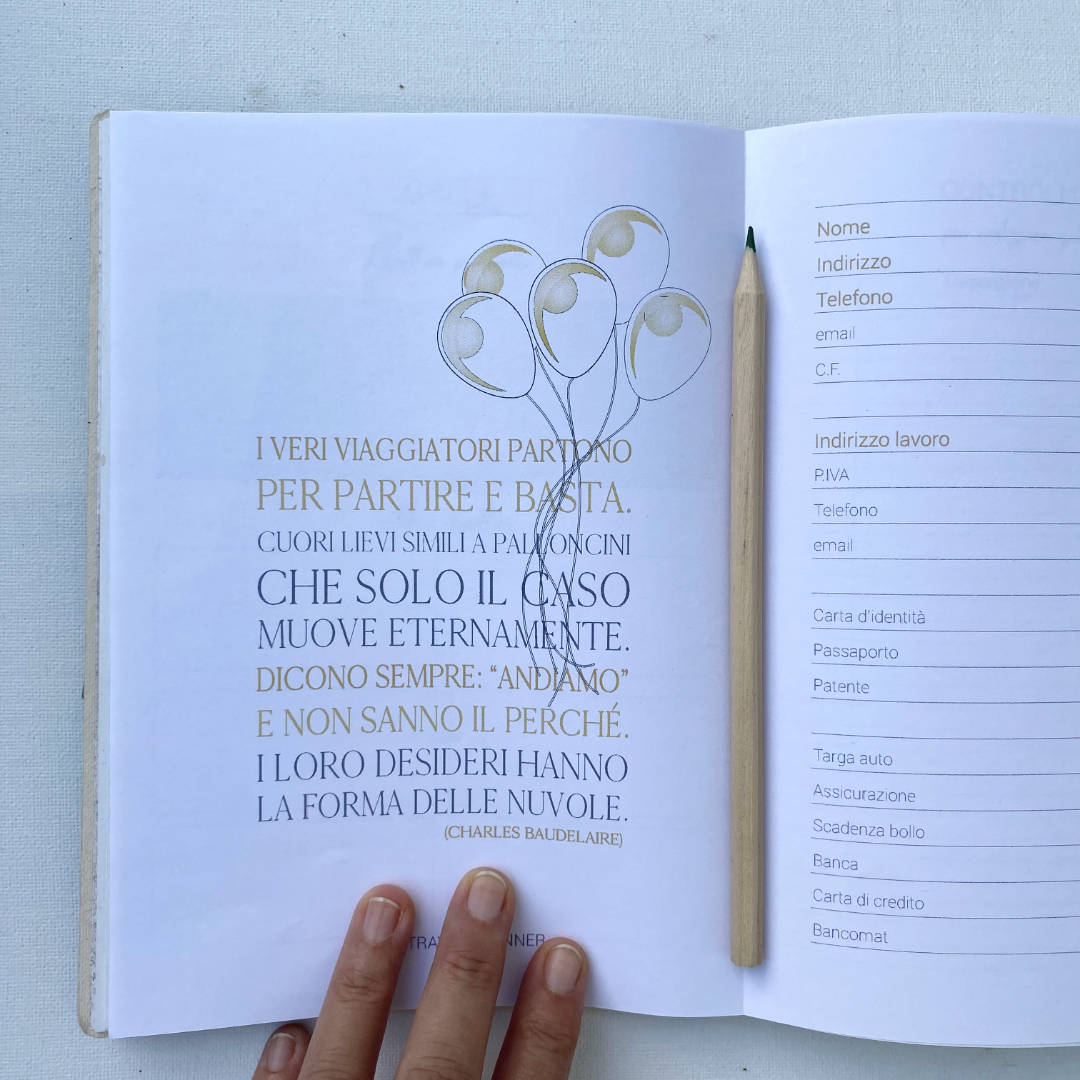 I VERI VIAGGIATORI PARTONO
PER PARTIRE E BASTA.
CUORI LIEVI SIMILI A PALLONCINI
CHE SOLO IL CASO
MUOVE ETERNAMENTE.
DICONO SEMPRE: “ANDIAMO”
E NON SANNO IL PERCHÉ.
I LORO DESIDERI HANNO
LA FORMA DELLE NUVOLE.
(CHARLES BAUDELAIRE)
Nome
Indirizzo
Telefono
email
C.F.
Indirizzo lavoro
P.IVA
Telefono
email
Carta d'identità
Passaporto
Patente
Targa auto
Assicurazione
Scadenza bollo
Banca
Carta di credito
Bancomat